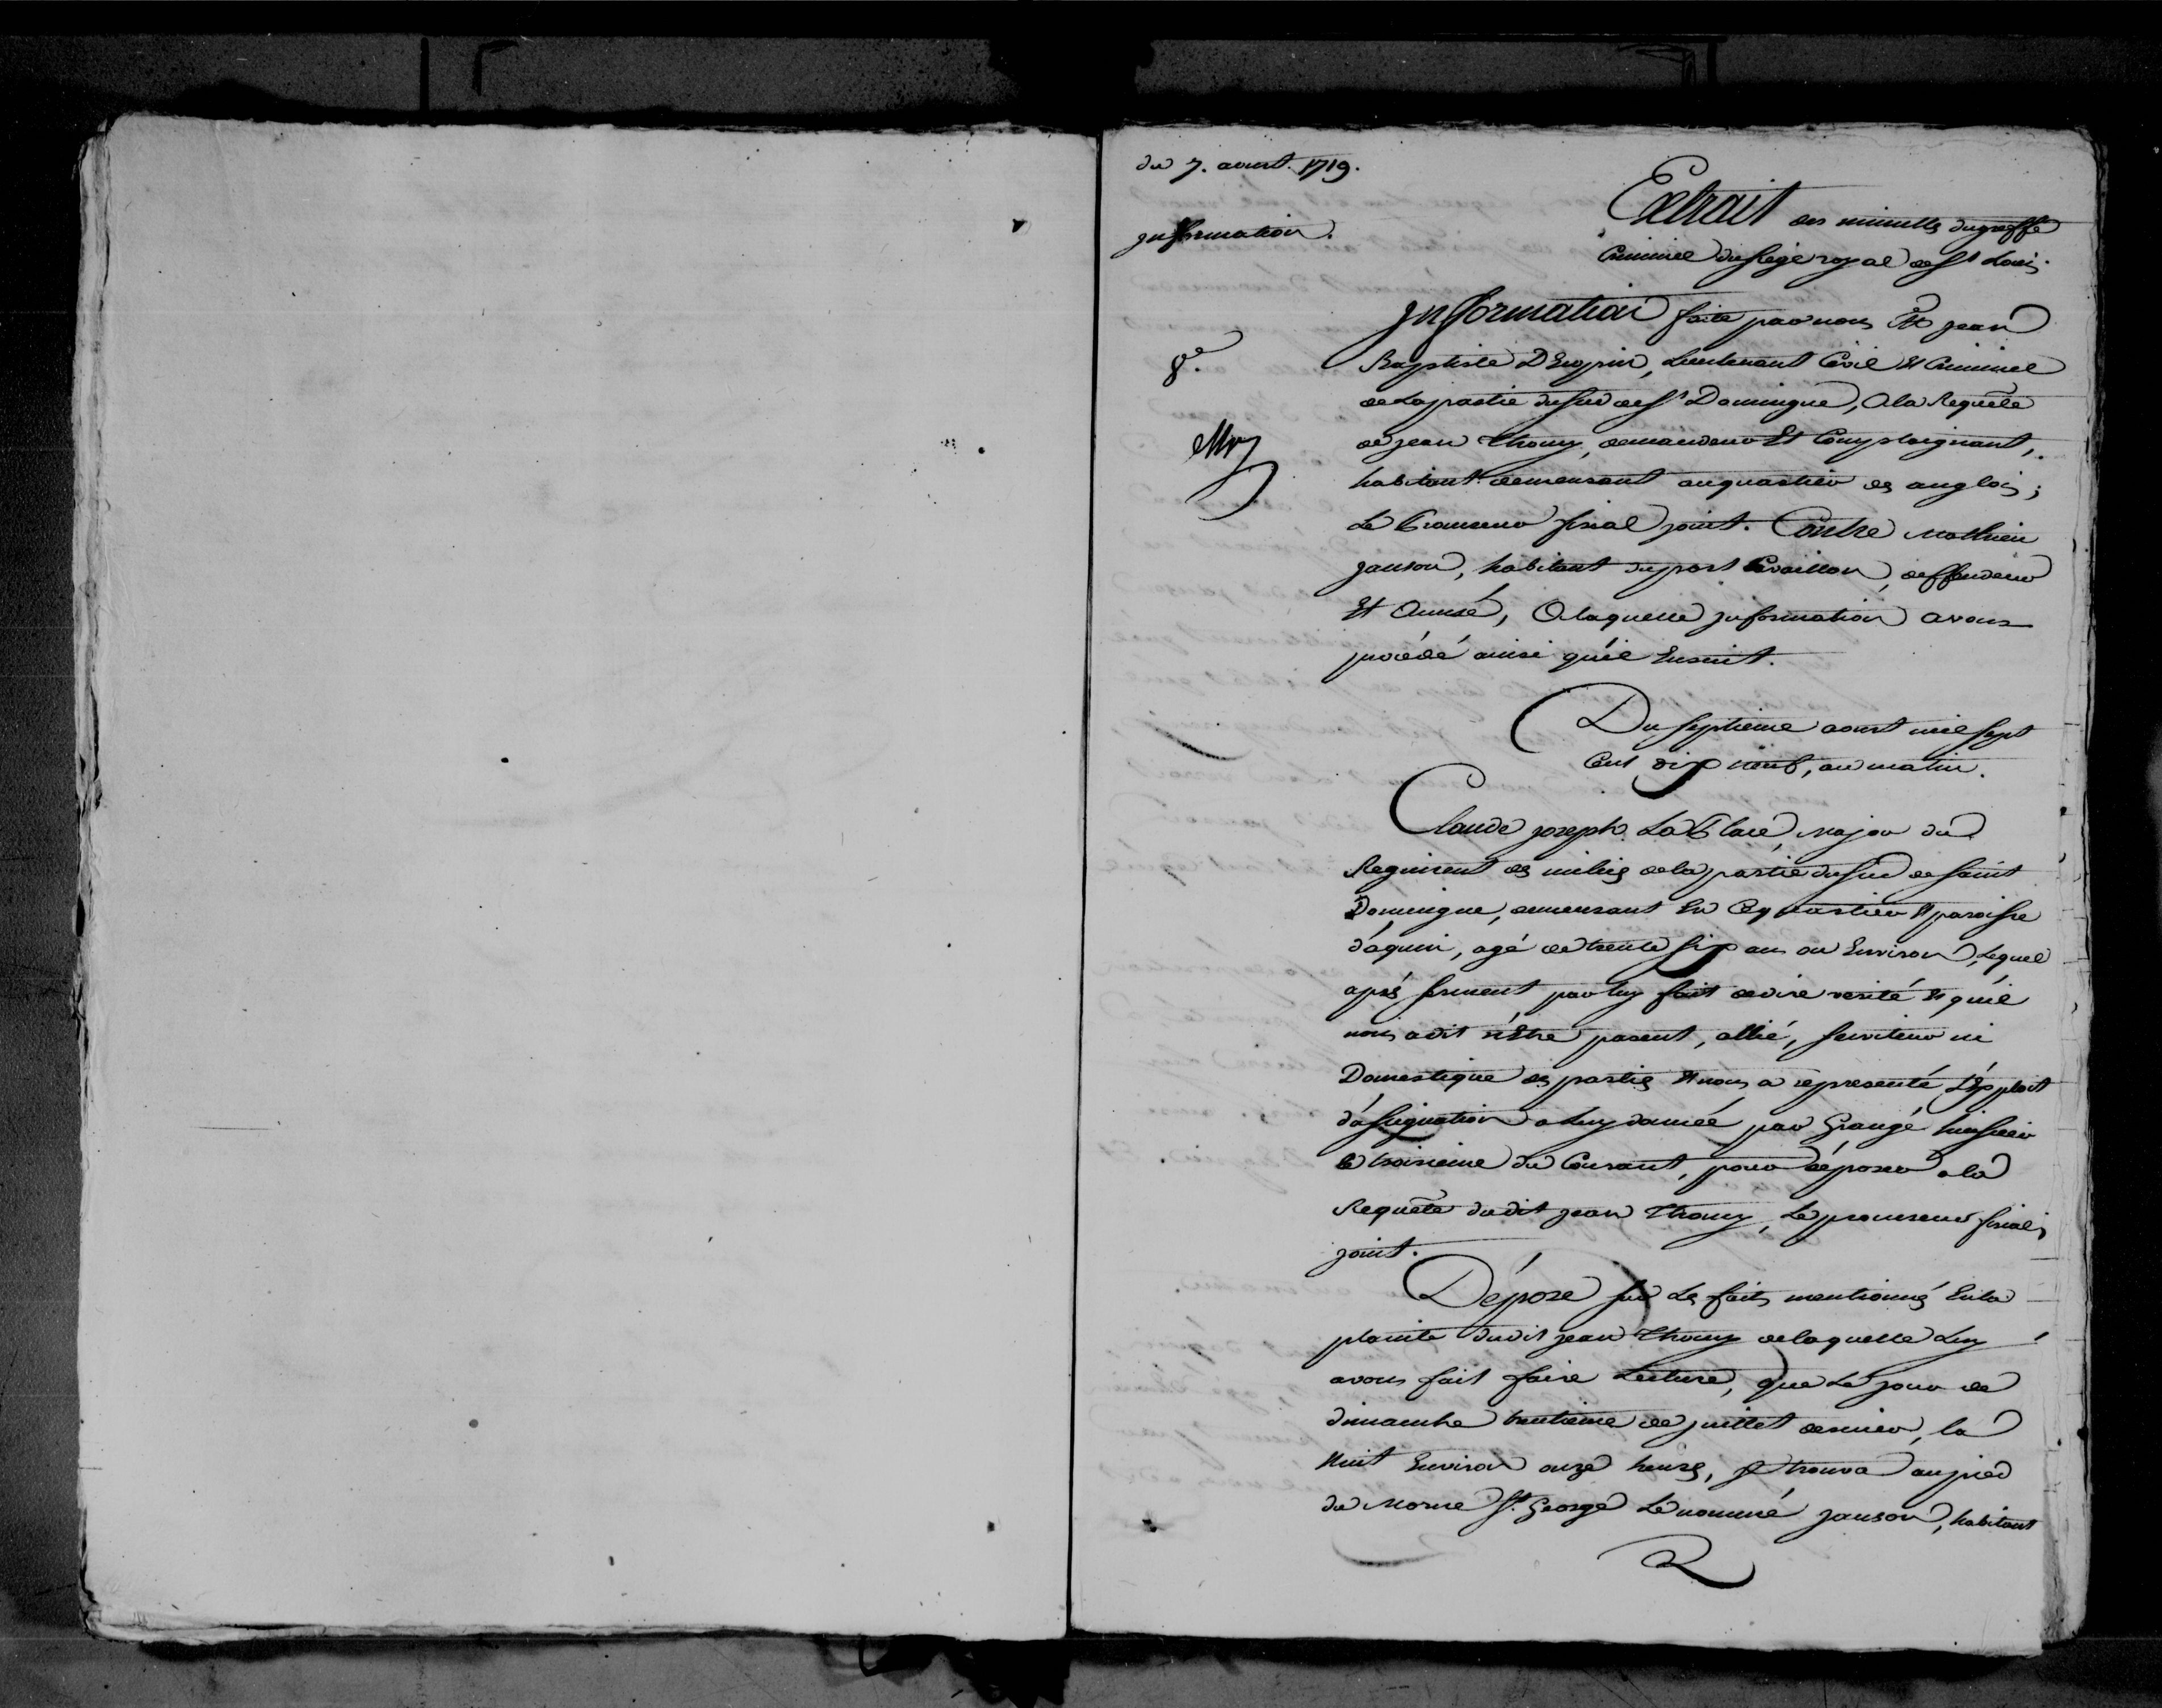 du 7. aoust. 1719.
Information.
Extrait des minuttes du greffe
Criminel du siege royal de St Louis.
8e.
Information faite par nous Me Jean
Baptiste Lieutenant Civil et Criminel
de la partie du sud de St Domingue, a la Requeste
de jean Thomy, demandeur Et Complaignant,
habitant demeurant au quartier des anglois;
Le Procureur fiscal joint. Contre Mathieu
janson, habitant du port Cavaillon, deffendeur
Et Accusé, A laquelle jnformation avons
procédé ainsi qu'il Ensuit.
Du septieme aoust mil sept
Cent dix neuf, au matin.
Claude joseph La Place, Major du
Regiment des milices de la partie du sud de saint
Domingue, demeurant En Ce quartier et paroisse
d'aquin, agé de trente six ans ou Environ, Lequel
aprés serment par luy fait de dire verité et qu'il
nous a dit n'Estre parent, allié, serviteur ni
Domestique des parties et nous a représenté L'Exploit
d'assignation a Luy donnée par Grangé huissier
le troisieme du Courant, pour déposer a la
Requeste dudit jean Thomy, Le procureur fiscal
joint.
Dépose sur Les faits mentionnés En la
plainte dudit jean Thomy de laquelle Luy
avons fait faire Lecture, que Le jour de
dimanche trentieme de juillet dernier, la
Nuit Environ onze heures, se trouva au pied
du Morne St. George Le nommé janson, habitant